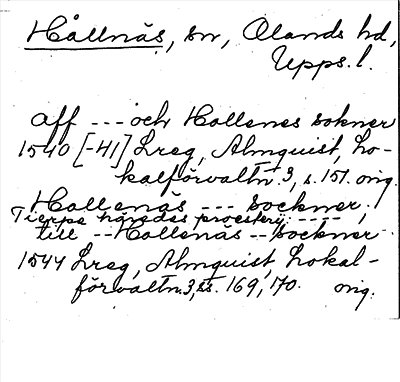 Hållnäs, sn, Olands hd,
Upps. l.
aff --- och Hollenes sokner
1540 [-41] Lreg, Almquist, Lo-
kalförvaltn. 3, s. 151. orig.
Hollenäs --- sockner,
Tierps häredes proesterij: ----,
till -- Hollenäs -- sockner
1544 Lreg, Almquist, Lokal-
förvaltn. 3, ss. 169, 170. orig.